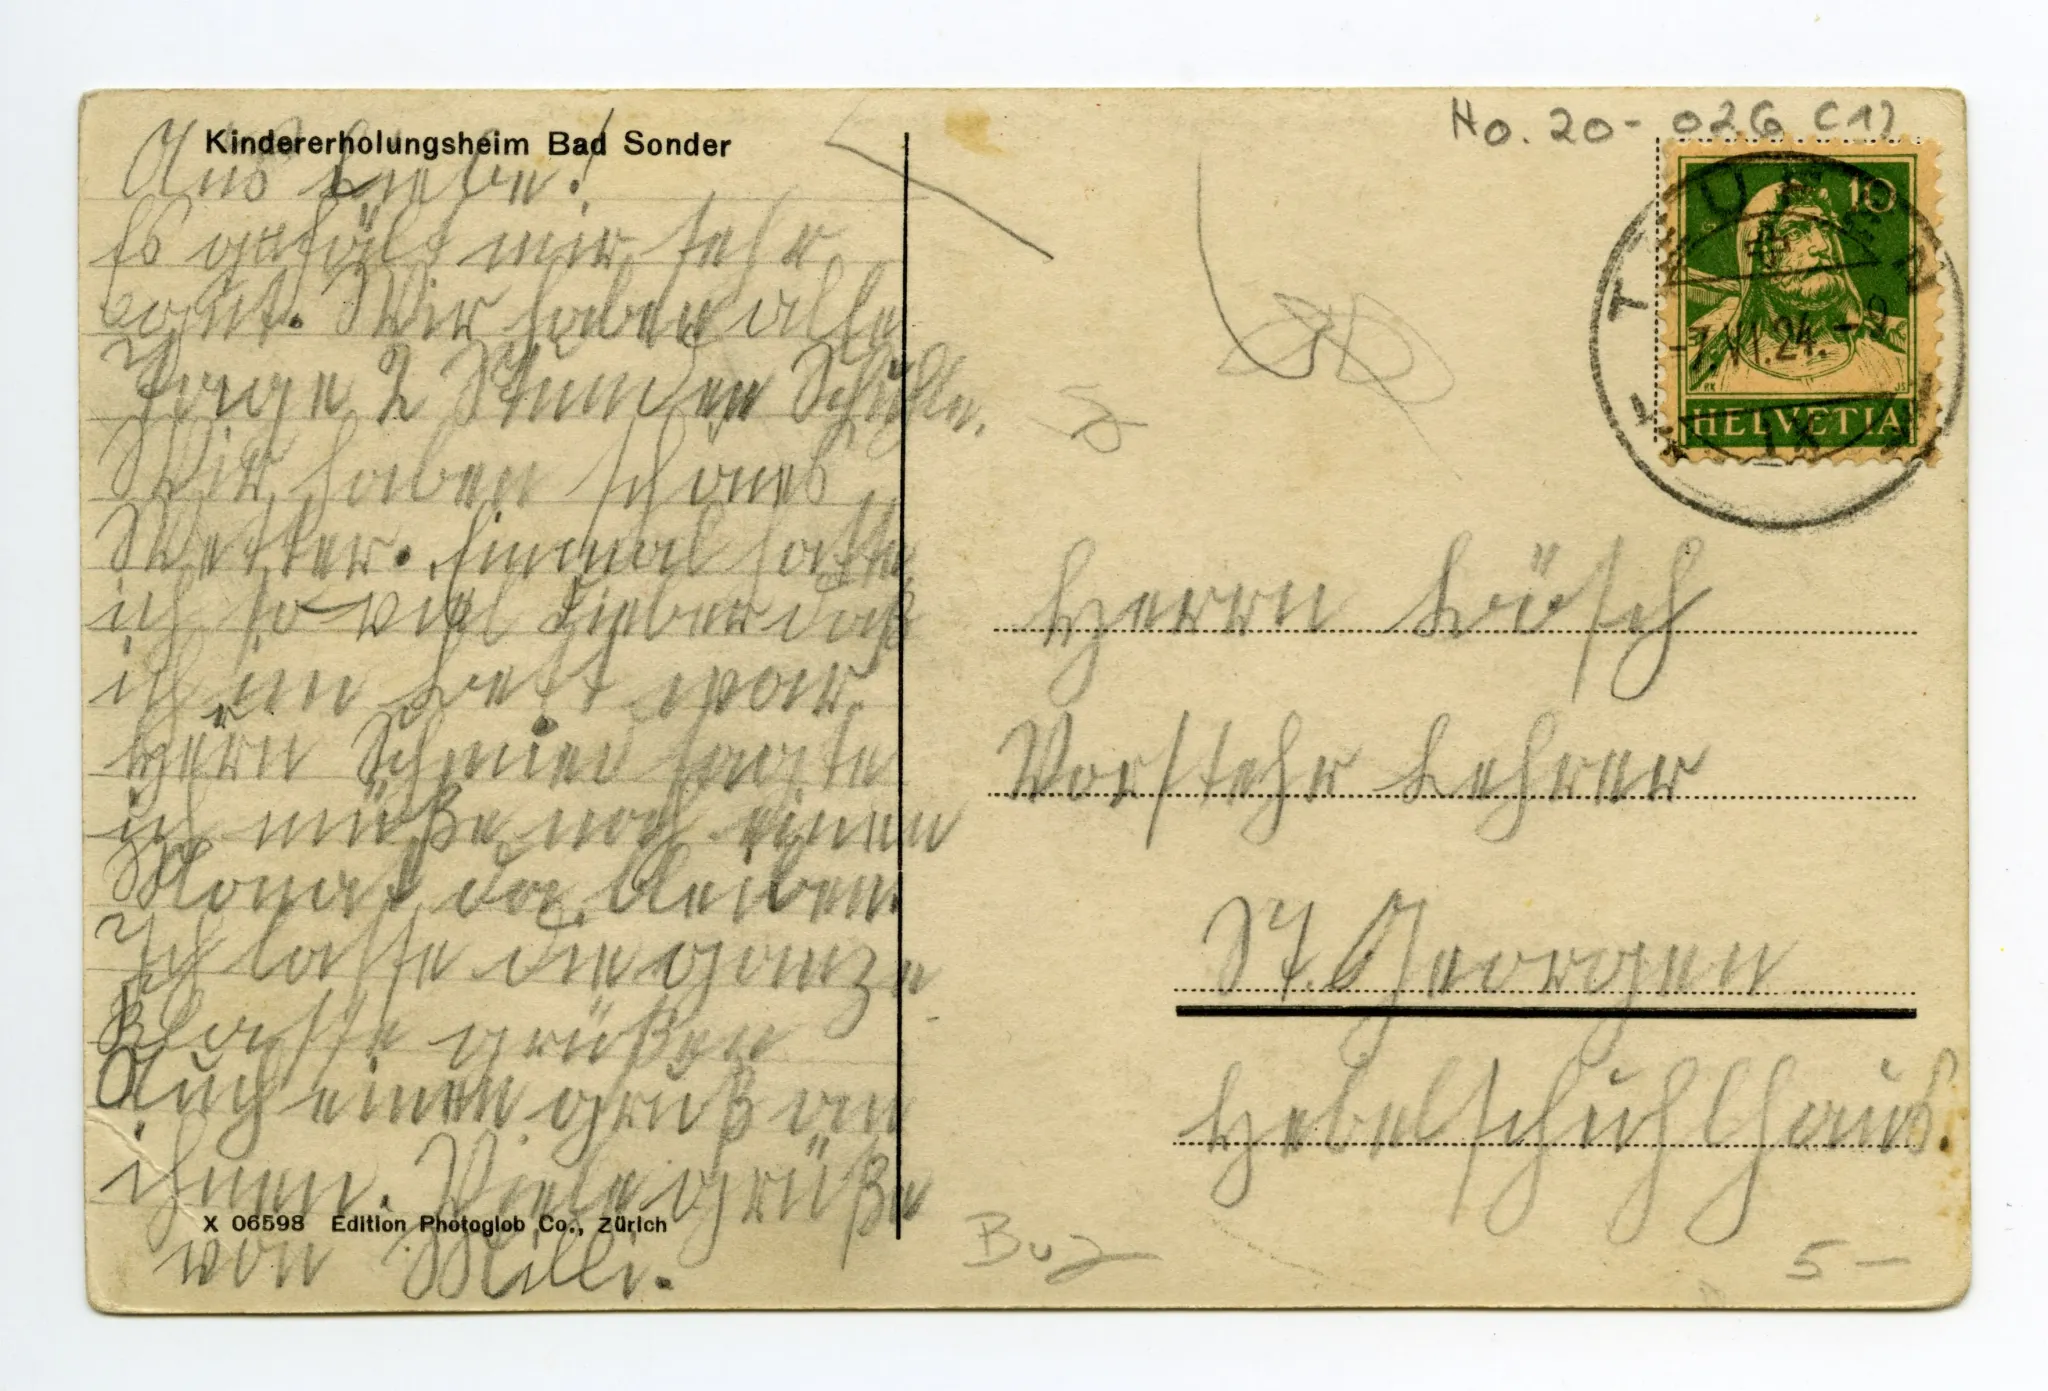 Kindererholungsheim Bad Sonder
Aus Liebe!
Es gefält mir sehr
gut. Wir haben alle
Tage 2 Stunden Schuhle.
Wir haben schönes
Wetter. Einmal hatte
ich so viel Fieber daß
ich im Bett war.
Herrn Schmied sagte
ich müße noch einen
Monat da bleiben.
Ich lasse die ganze
Klasse grüßen
Auch einen gruß an
ihnen. Viele grüße
von Milli.
X 06598 Edition Photoglob Co., Zürich
No. 20-026 (1)
10
TEUFEN
-7.VI.24.-9
HELVETIA
Herrn Lösch
Vorstehr Lehrer
St. Georgen
Hebelschuhlhaus.
5-